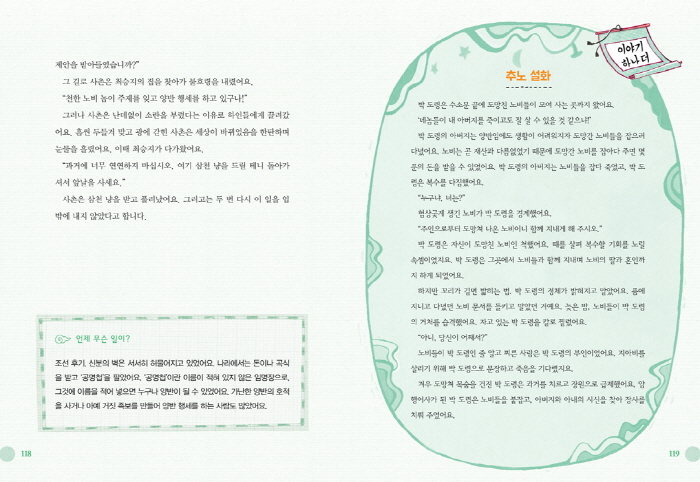 제안을 받아들였습니까?"
그 길로 사촌은 최승지의 집을 찾아가 불호령을 내렸어요.
"천한 노비 놈이 주제를 잊고 양반 행세를 하고 있구나!"
그러나 사촌은 난데없이 소란을 부렸다는 이유로 하인들에게 끌려갔
어요. 흠씬 두들겨 맞고 광에 갇힌 사촌은 세상이 바뀌었음을 한탄하며
눈물을 흘렸어요. 이때 최승지가 다가왔어요.
"과거에 너무 연연하지 마십시오. 여기 삼천 냥을 드릴 테니 돌아가
셔서 앞날을 사세요."
사촌은 삼천 냥을 받고 풀려났어요. 그러고는 두 번 다시 이 일을 입
밖에 내지 않았다고 합니다.
언제 무슨 일이?
조선 후기, 신분의 벽은 서서히 허물어지고 있었어요. 나라에서는 돈이나 곡식
을 받고 '공명첩'을 팔았어요. '공명첩'이란 이름이 적혀 있지 않은 임명장으로,
그것에 이름을 적어 넣으면 누구나 양반이 될 수 있었어요. 가난한 양반의 호적
을 사거나 아예 거짓 족보를 만들어 양반 행세를 하는 사람도 많았어요.
118
이야기
하나 더
추노 설화
박 도령은 수소문 끝에 도망친 노비들이 모여 사는 곳까지 왔어요.
'네놈들이 내 아버지를 죽이고도 잘 살 수 있을 것 같으냐!'
박 도령의 아버지는 양반임에도 생활이 어려워지자 도망간 노비들을 잡으러
다녔어요. 노비는 곧 재산과 다름없었기 때문에 도망간 노비를 잡아다 주면 몇
푼의 돈을 받을 수 있었어요. 박 도령의 아버지는 노비들을 잡다 죽었고, 박 도
령은 복수를 다짐했어요.
"누구냐, 너는?"
험상궂게 생긴 노비가 박 도령을 경계했어요.
"주인으로부터 도망쳐 나온 노비이니 함께 지내게 해 주시오."
박 도령은 자신이 도망친 노비인 척했어요. 때를 살펴 복수할 기회를 노릴
속셈이었지요. 박 도령은 그곳에서 노비들과 함께 지내며 노비의 딸과 혼인까
지 하게 되었어요.
하지만 꼬리가 길면 밟히는 법. 박 도령의 정체가 밝혀지고 말았어요. 품에
지니고 다녔던 노비 문서를 들키고 말았던 거예요. 늦은 밤, 노비들이 박 도령
의 거처를 습격했어요. 자고 있는 박 도령을 칼로 찔렀어요.
"아니, 당신이 어째서?"
노비들이 박 도령인 줄 알고 찌른 사람은 박 도령의 부인이었어요. 지아비를
살리기 위해 박 도령으로 분장하고 죽음을 기다렸지요.
겨우 도망쳐 목숨을 건진 박 도령은 과거를 치르고 장원으로 급제했어요. 암
행어사가 된 박 도령은 노비들을 붙잡고, 아버지와 아내의 시신을 찾아 장사를
치러 주었어요.
119